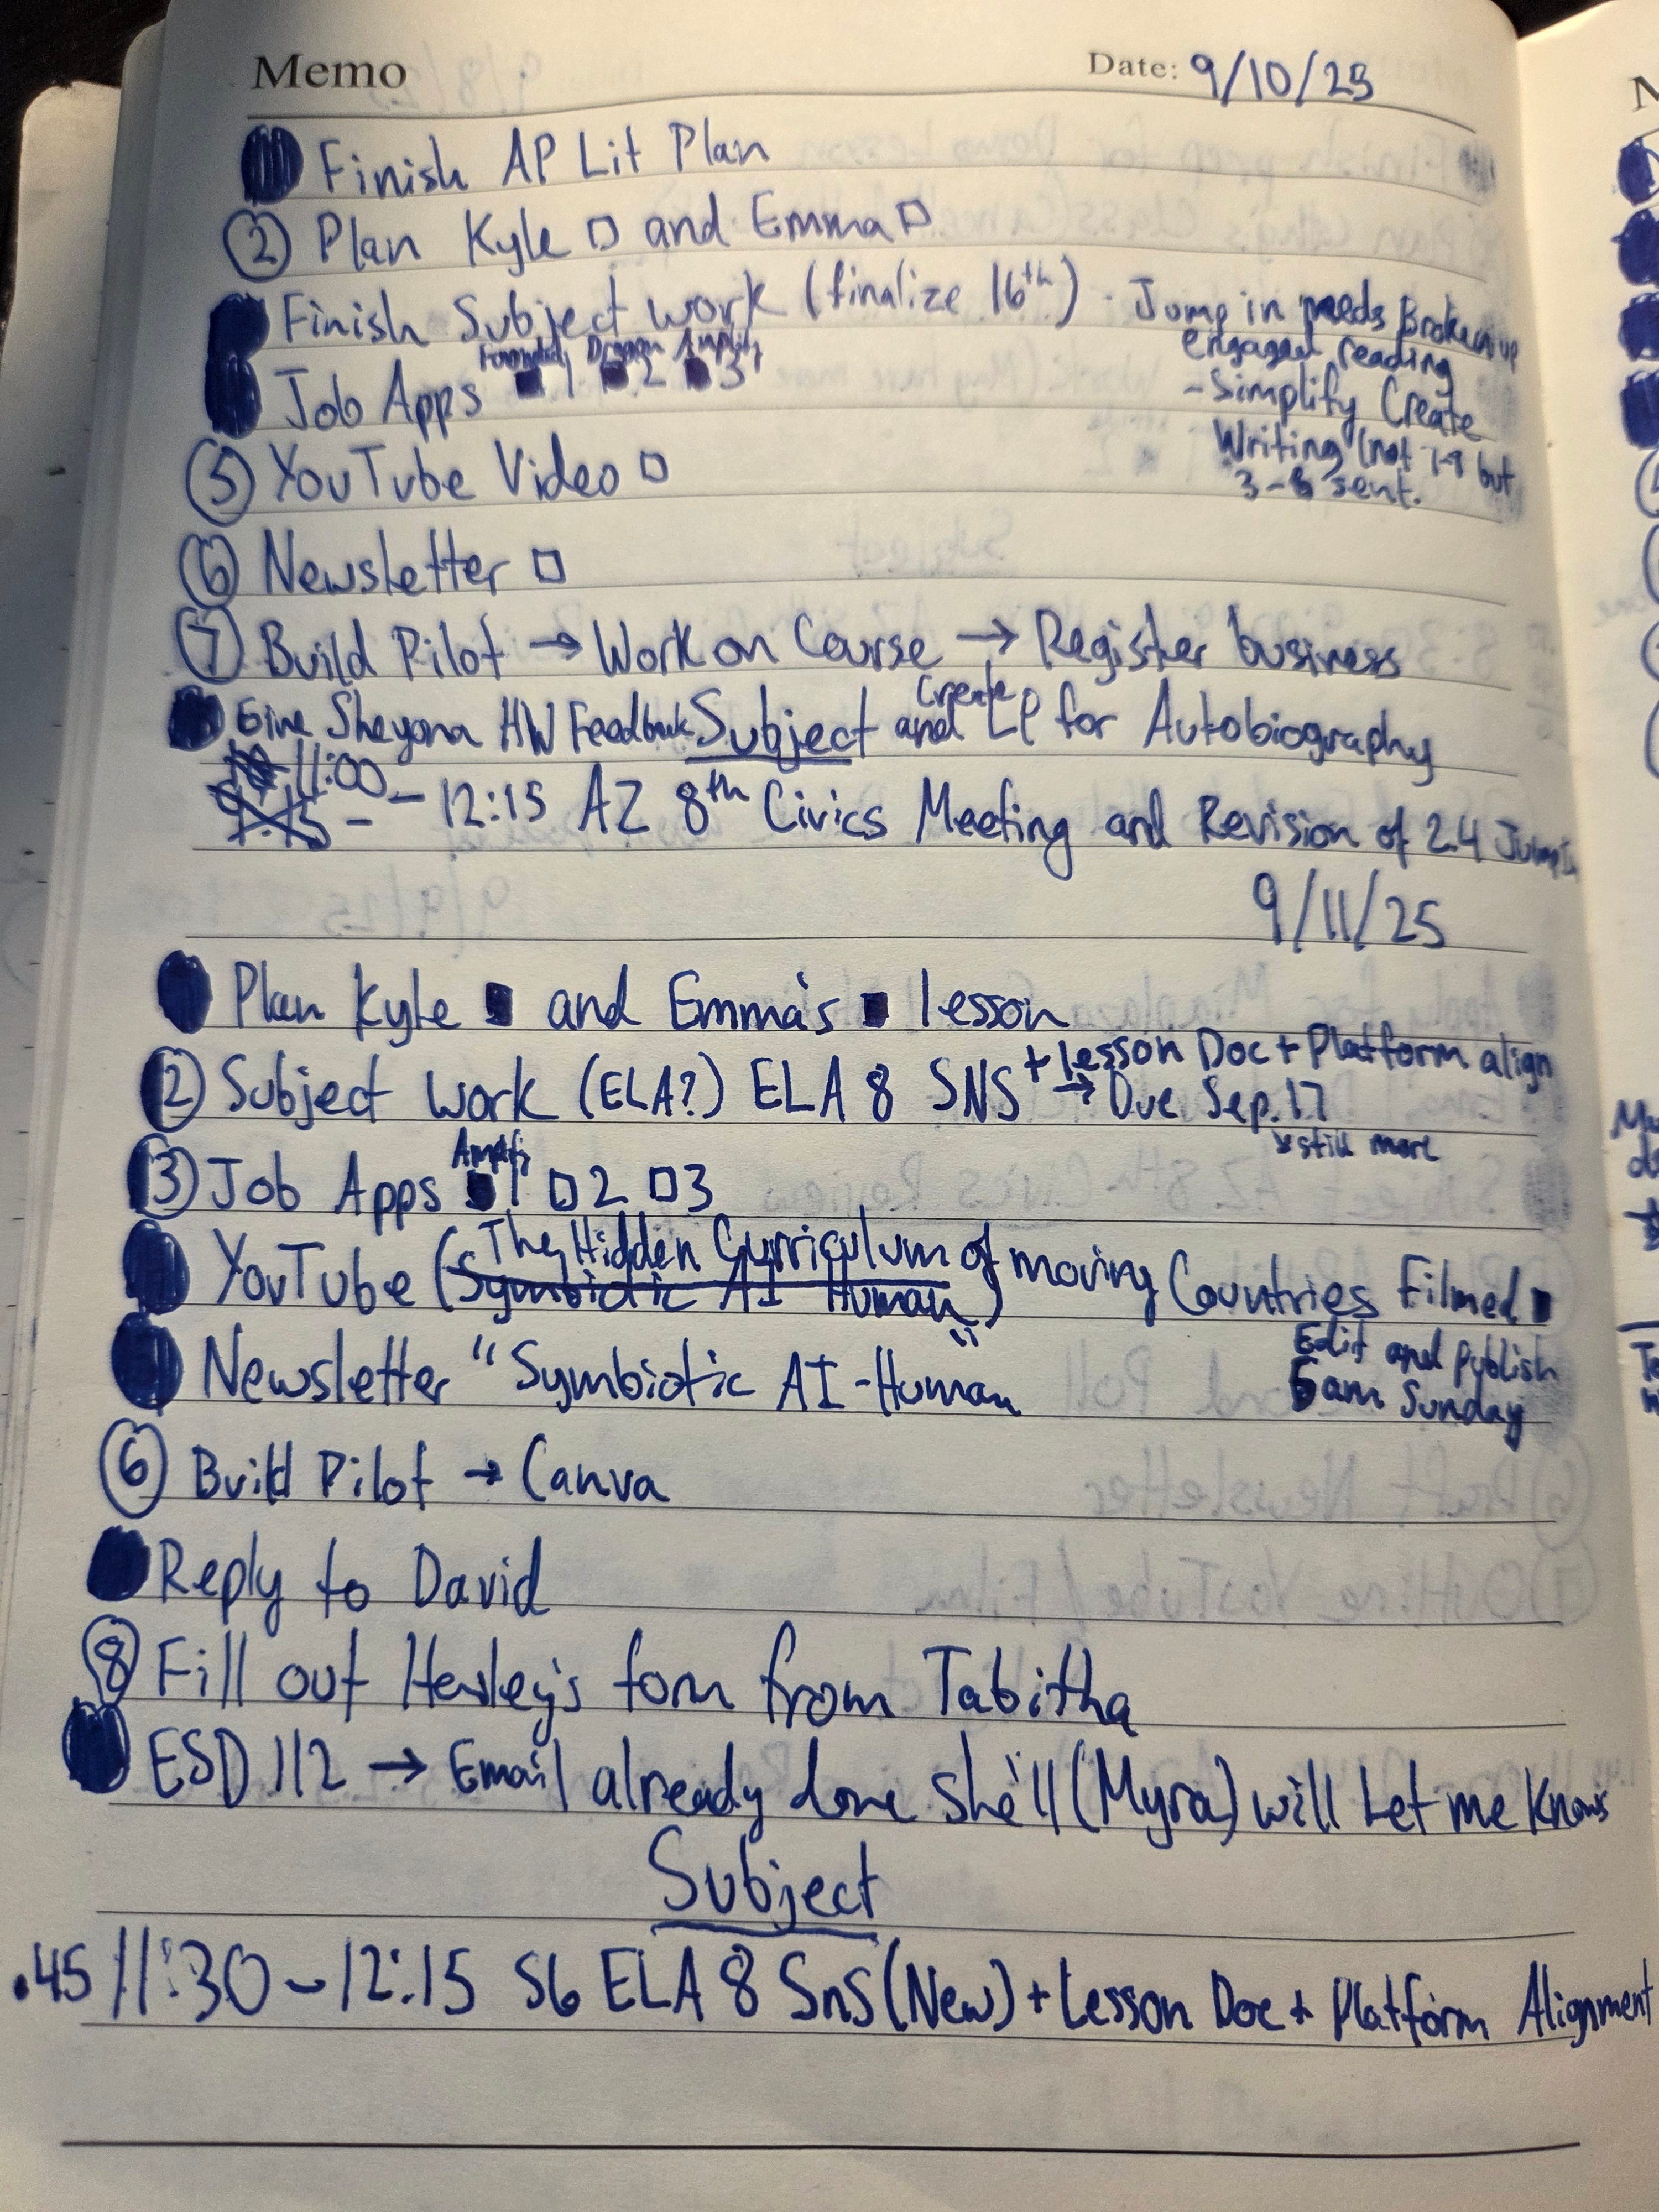 Memo Date: 9/10/25
Finish AP Lit Plan
② Plan Kyle □ and Emma □
Finish Subject work (finalize 16th) - Jump in needs Broken up
engaged reading
- Simplify Create
Writing (not 7-9 but
3-5 sent.
Dragon Amplify
Job Apps ■ 1 ■ 2 ■ 3
⑤ YouTube Video □
⑥ Newsletter □
⑦ Build Pilot → Work on Course → Register business
Give Sheyona HW Feedback Subject and Create LP for Autobiography
11:00 - 12:15 AZ 8th Civics Meeting and Revision of 2.4 Jump In
9/11/25
Plan Kyle ■ and Emma's ■ lesson
② Subject Work (ELA?) ELA 8 SNS + Lesson Doc + Platform align
→ Due Sep. 17
↘ still more
Amplify
③ Job Apps ■ 1 □ 2 □ 3
YouTube (The Hidden Curriculum of moving Countries Filmed ■
Symbiotic AI Human)
Edit and publish
6am Sunday
Newsletter "Symbiotic AI-Human"
⑥ Build Pilot → Canva
Reply to David
⑧ Fill out form from Tabitha
ESD 112 → Email already done she'll (Myra) will Let me Know
Subject
.45 11:30 - 12:15 S6 ELA 8 SnS (New) + Lesson Doc + Platform Alignment